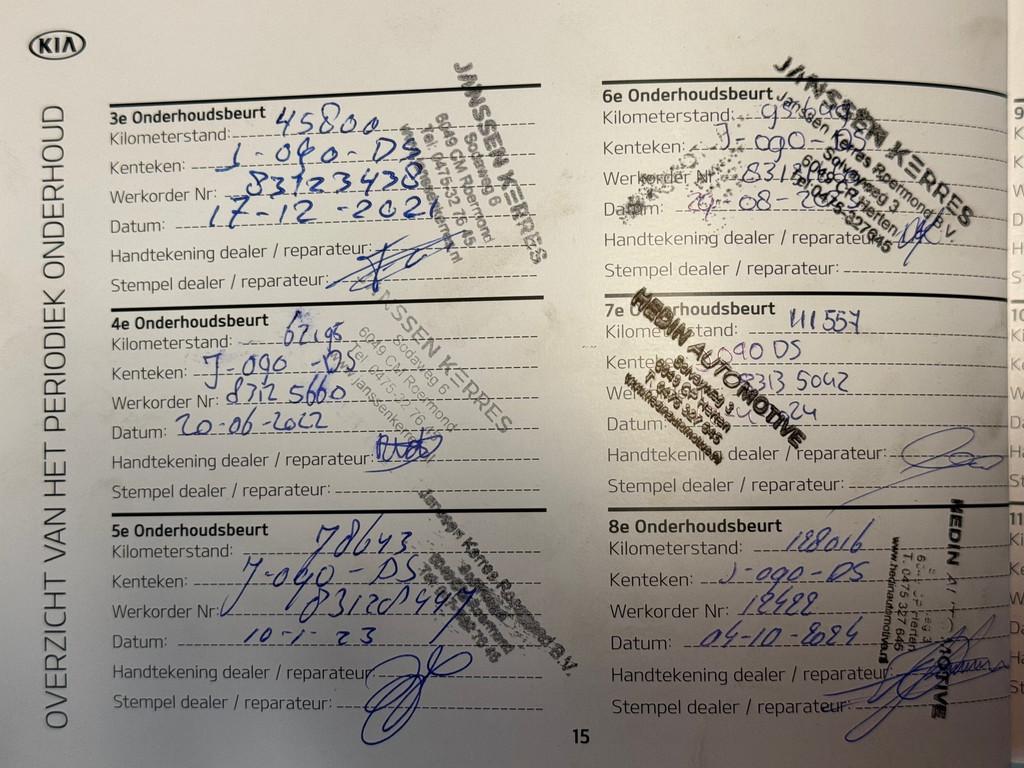 KIA
OVERZICHT VAN HET PERIODIEK ONDERHOUD
3e Onderhoudsbeurt
Kilometerstand: 45800
Kenteken: J-090-DS
Werkorder Nr: 83123438
Datum: 17-12-2021
Handtekening dealer / reparateur:
Stempel dealer / reparateur:
JANSSEN KERRES
Sodaweg 6
6049 CM Roermond
Tel. 0475-32 76 45
4e Onderhoudsbeurt
Kilometerstand: 62195
Kenteken: J-090-DS
Werkorder Nr: 8312 5660
Datum: 20-06-2022
Handtekening dealer / reparateur:
Stempel dealer / reparateur:
JANSSEN KERRES
Sodaweg 6
6049 CM Roermond
5e Onderhoudsbeurt
Kilometerstand: 78643
Kenteken: J-090-DS
Werkorder Nr: 83128447
Datum: 10-1-23
Handtekening dealer / reparateur:
Stempel dealer / reparateur:
Janssen Kerres Roermond B.V.
6e Onderhoudsbeurt
Kilometerstand:
Kenteken: J-090-DS
Werkorder Nr:
Datum:
Handtekening dealer / reparateur:
Stempel dealer / reparateur:
JANSSEN KERRES
Janssen Kerres Roermond B.V.
Solvayweg 3
Tel. 0475-327645
7e Onderhoudsbeurt
Kilometerstand: 111557
Kenteken: 090 DS
8313 5042
Datum:
Handtekening dealer / reparateur:
Stempel dealer / reparateur:
HEDIN AUTOMOTIVE
Solvayweg 3
T. 0475 327 645
8e Onderhoudsbeurt
Kilometerstand: 128016
Kenteken: J-090-DS
Werkorder Nr: 12422
Datum: 04-10-2024
Handtekening dealer / reparateur:
Stempel dealer / reparateur:
HEDIN AUTOMOTIVE
T. 0475 327 646
15